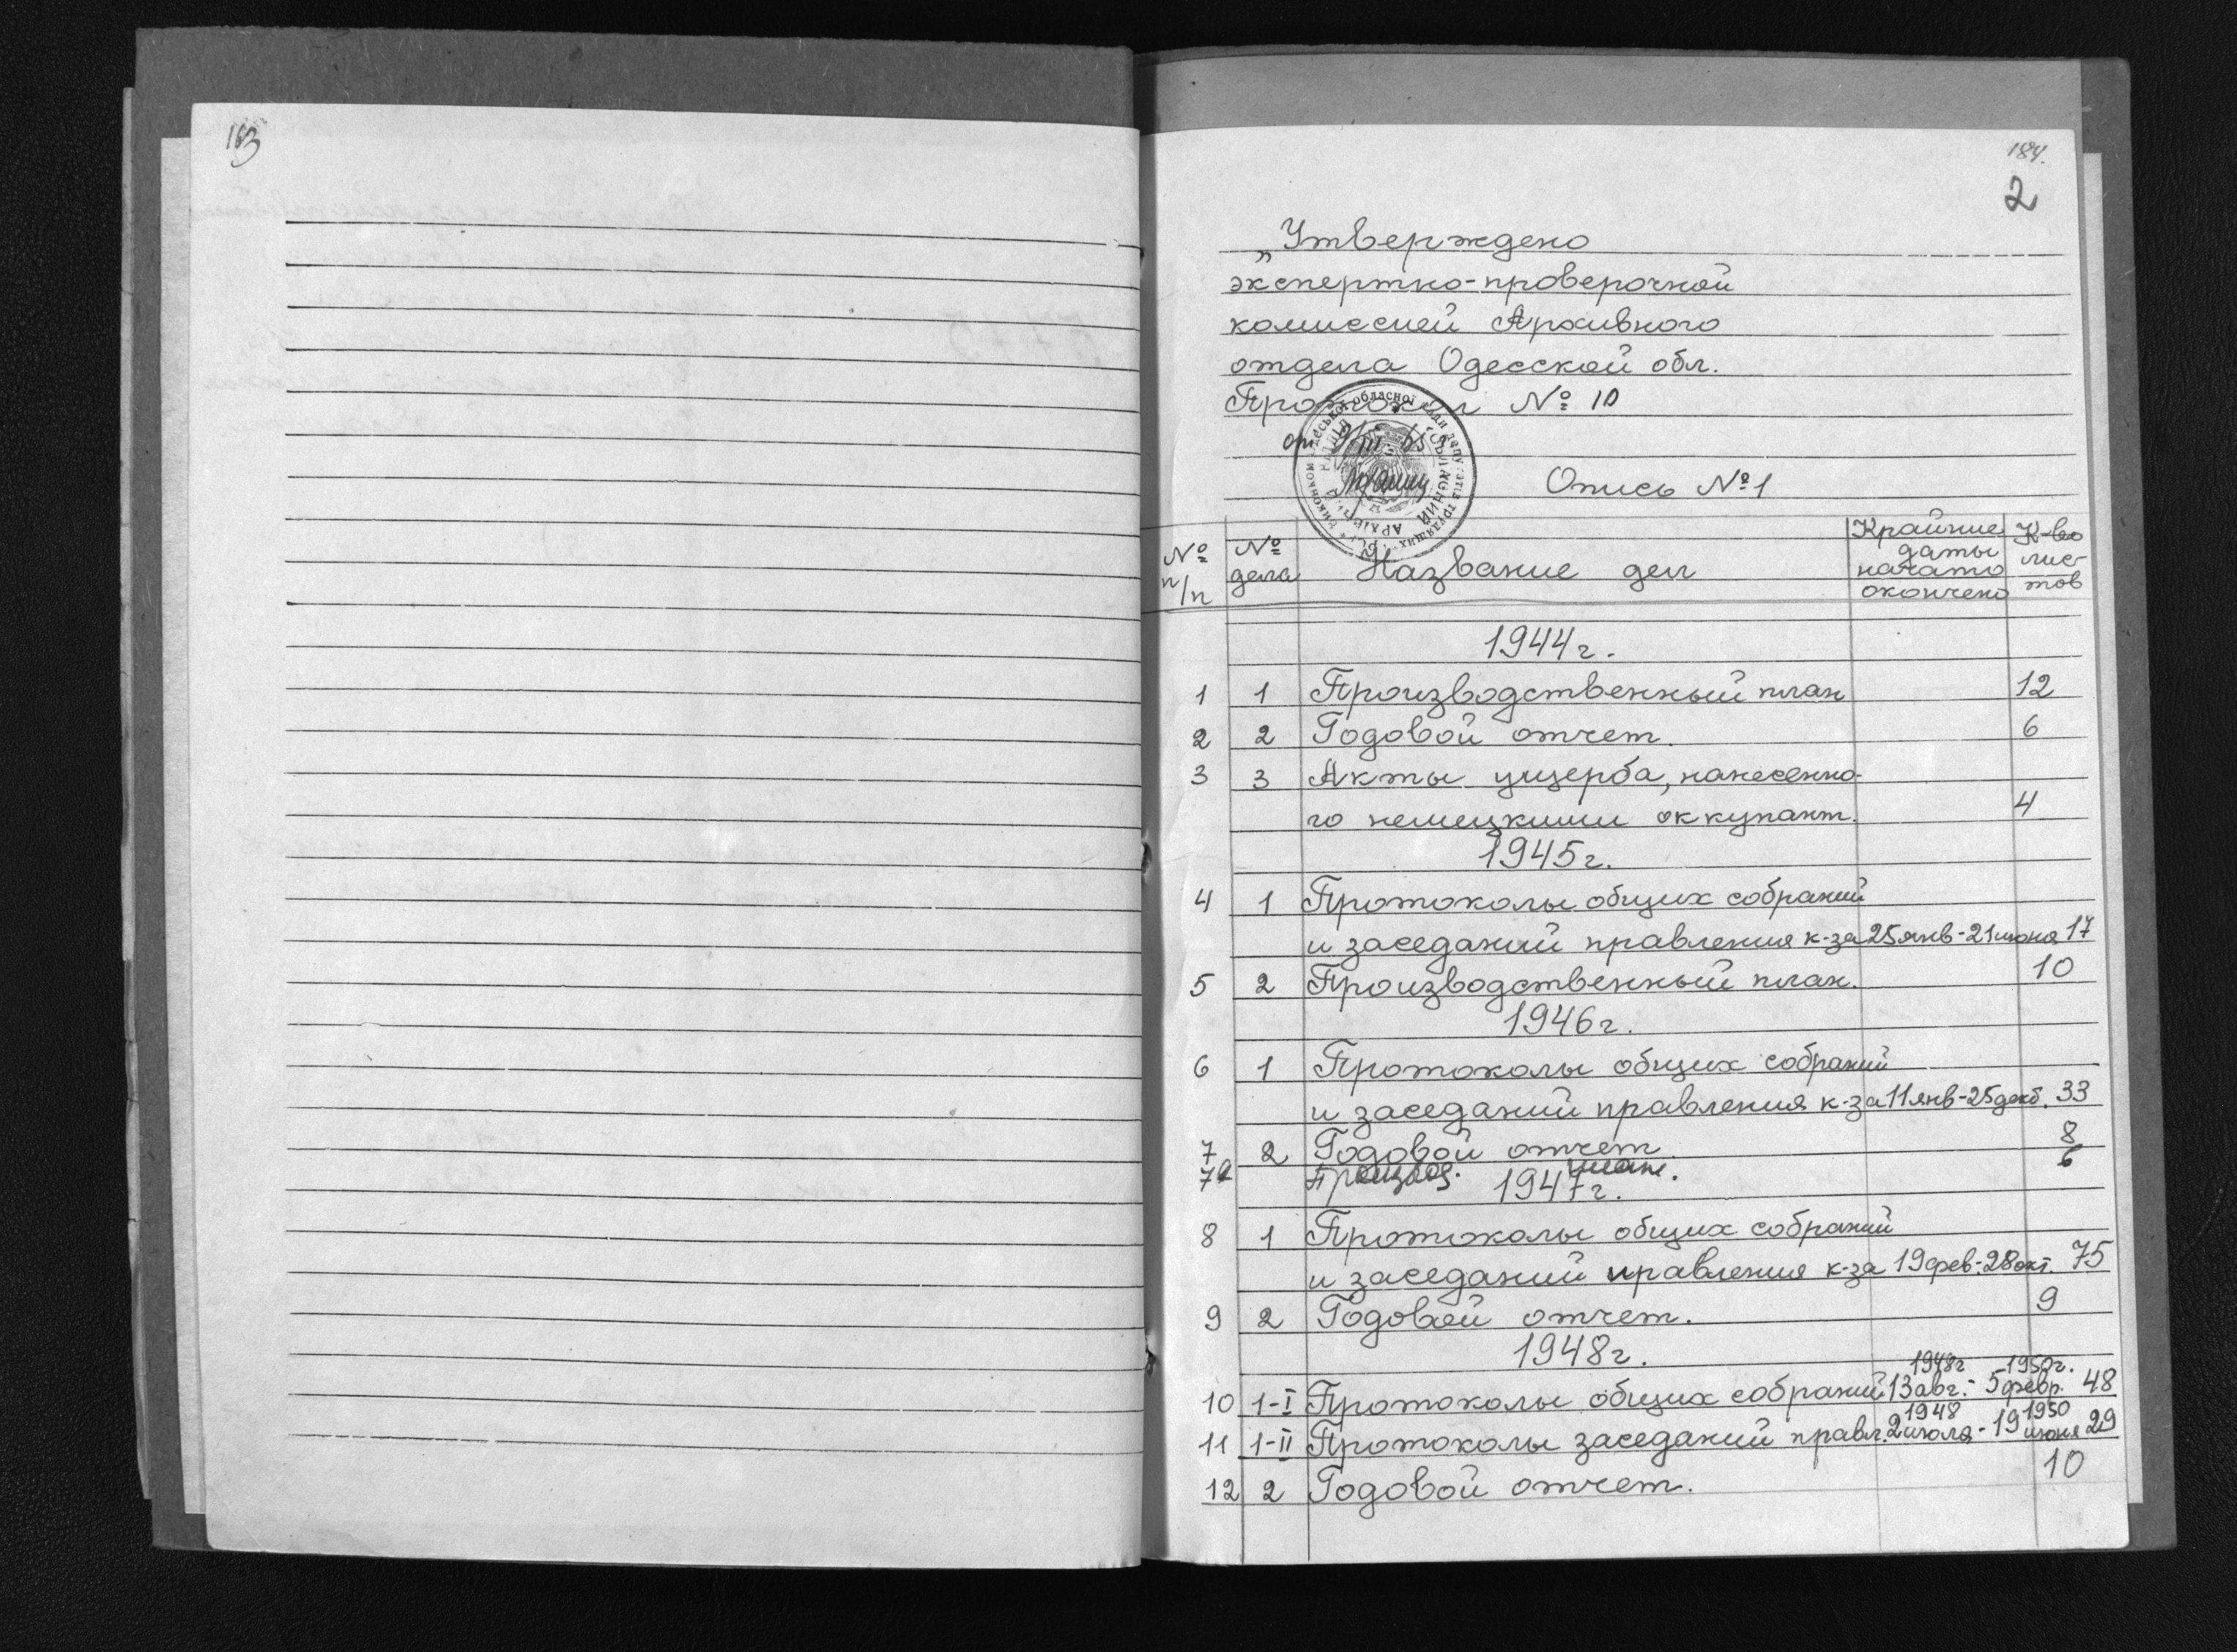 183
184.
2
„Утверждено
экспертно-проверочной
комиссией Архивного
отдела Одесской обл.
Протокол № 10
от
Опись №1
№ п/п
№ дела
Название дел
Крайние даты начато окончено
К-во лис-тов
1944г.
1 1 Производственный план 12
2 2 Годовой отчет. 6
3 3 Акты ущерба, нанесенно-
го немецкими оккупант. 4
1945г.
4 1 Протоколы общих собраний
и заседаний правления к-за 25 янв - 21 июня 17
5 2 Производственный план. 10
1946г.
6 1 Протоколы общих собраний
и заседаний правления к-за 11 янв - 25 декб. 33
7 2 Годовой отчет. 8
7а Производ. план. 6
1947г.
8 1 Протоколы общих собраний
и заседаний правления к-за 19 фев - 28 окт. 75
9 2 Годовой отчет. 9
1948г.
1948г - 1950г.
10 1-I Протоколы общих собраний 13 авг. - 5 февр. 48
1948 1950
11 1-II Протоколы заседаний правл. 2 июля - 19 июня 29
12 2 Годовой отчет. 10